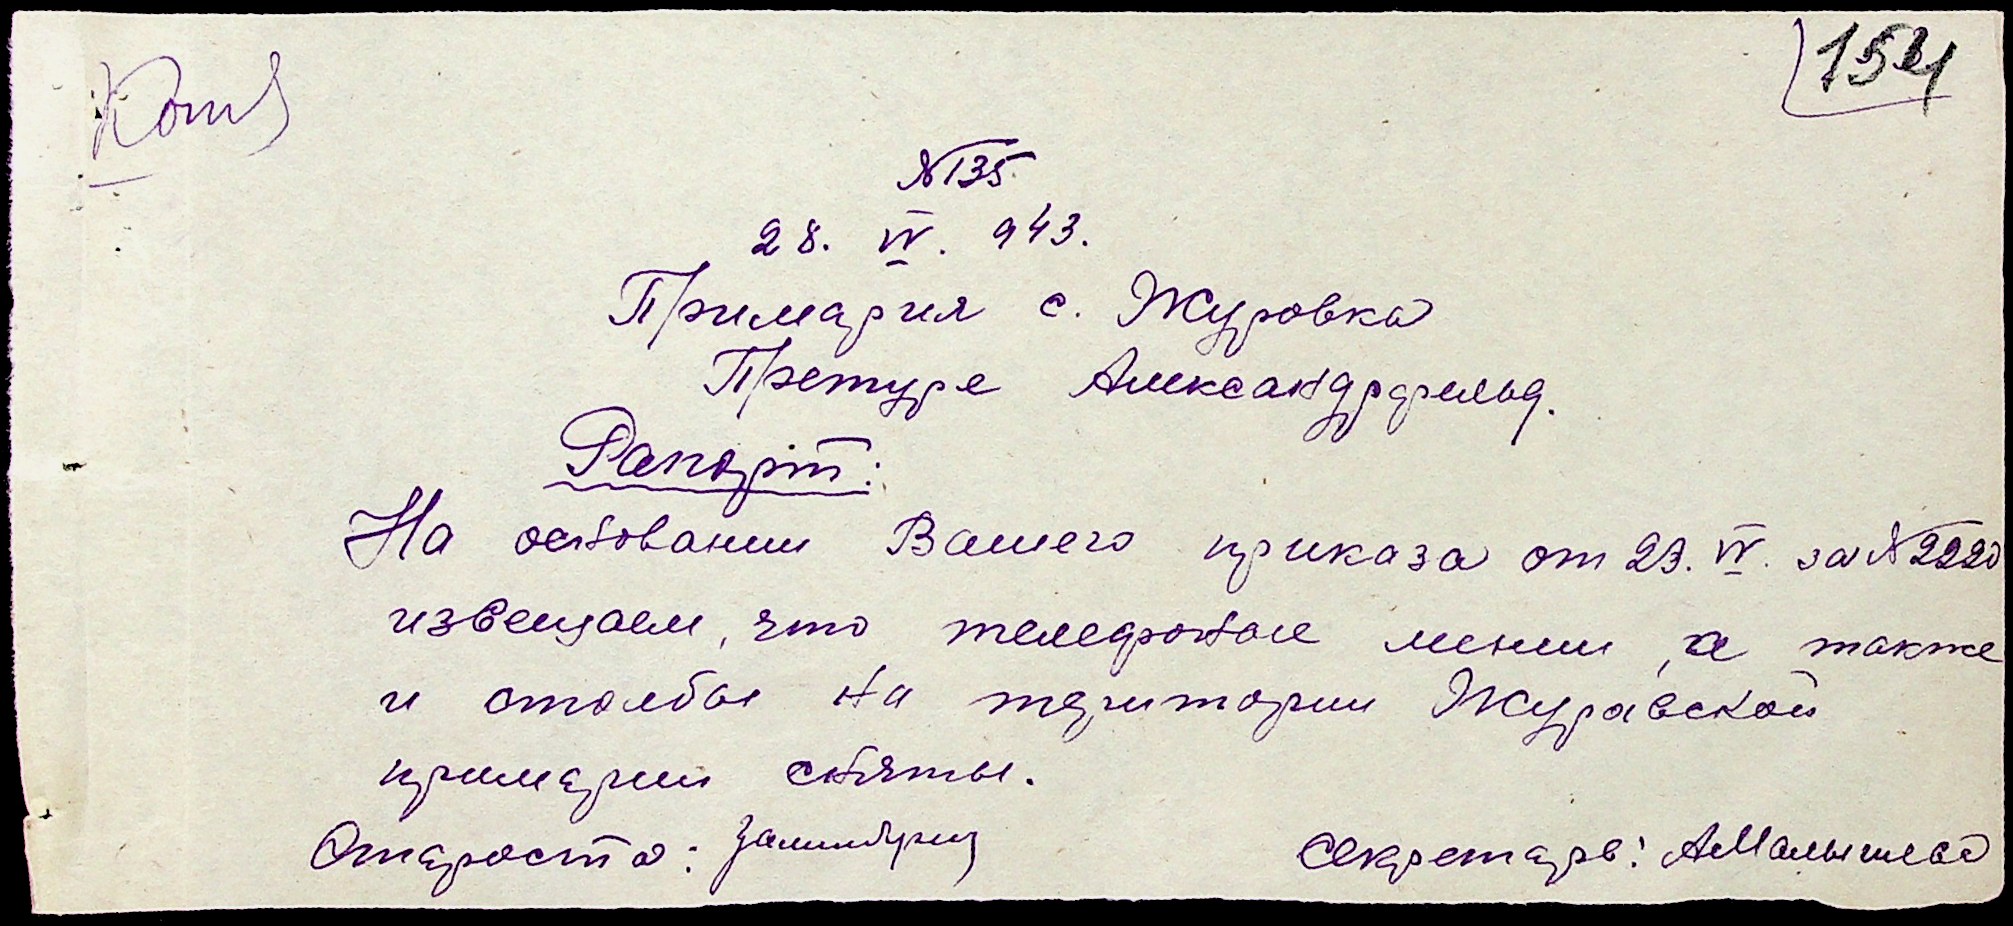 154
Копия
№ 135
28. IV. 943.
Примария с. Журовка
Претуре Александрфельд.
Рапорт:
На основании Вашего приказа от 23. IV. за № 2220
извещаем, что телефоные линии, а также
и столбы на территории Журавской
примарии сняты.
Староста:
Секретарь: АМалышева